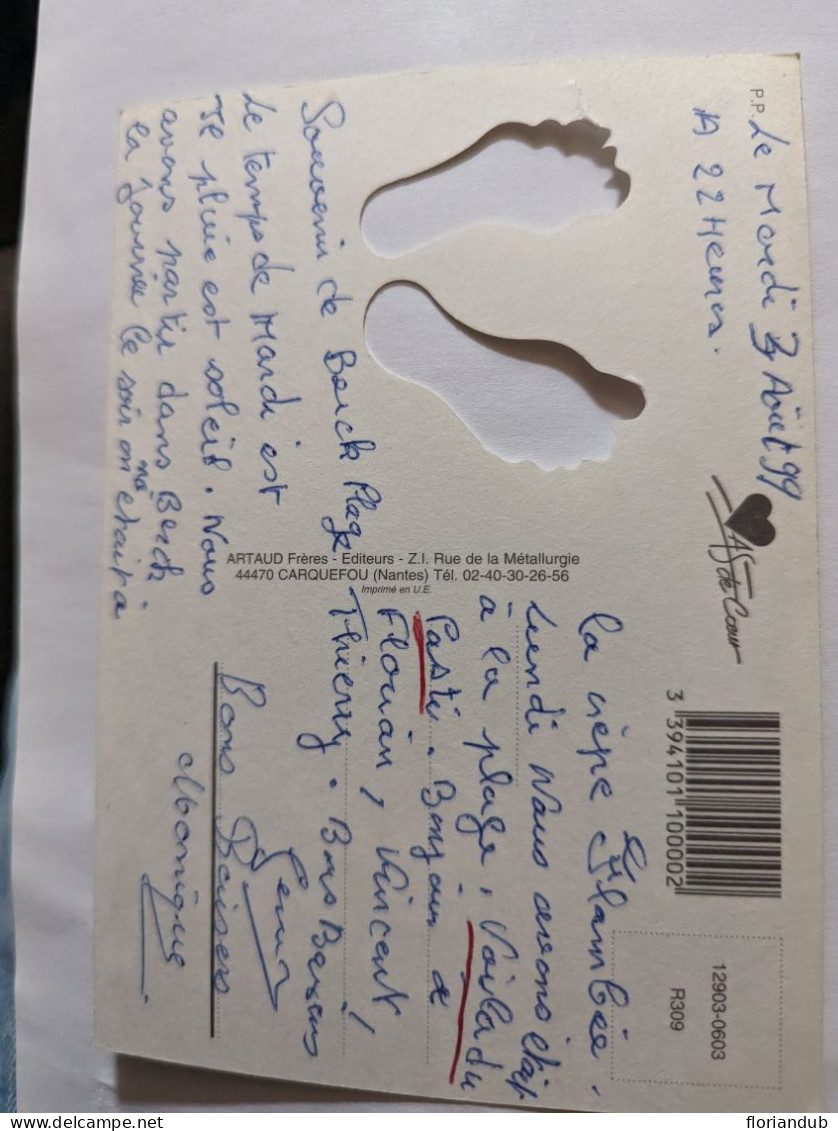 P.P. Le Mardi 3 Août 99
A 22 Heures.
Souvenir de Berck Plage
Le temps de Mardi est
Te pluie est soleil. Nous
avons partir dans Berck
la journée le soir on
etait à
As de Cœur
ARTAUD Frères - Editeurs - Z.I. Rue de la Métallurgie
44470 CARQUEFOU (Nantes) Tél. 02-40-30-26-56
Imprimé en U.E.
3 394101 100002
12903-0603
R309
la crèpe Flambée.
Lundi Nous avons était
à la plage, Voila du
Pasti. Bonjour a
Florian, Vincent,
Thierry. Bons Baisers
Bons Baisers
Monique
floriandub